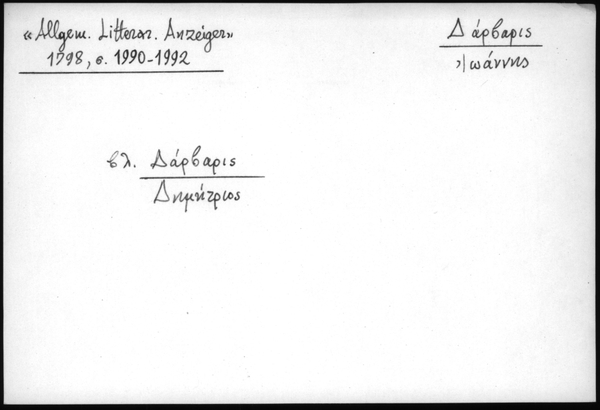 «Allgem. Litterar. Anzeiger»
1798, σ. 1990-1992
Δάρβαρις
Ἰωάννης
βλ. Δάρβαρις
Δημήτριος